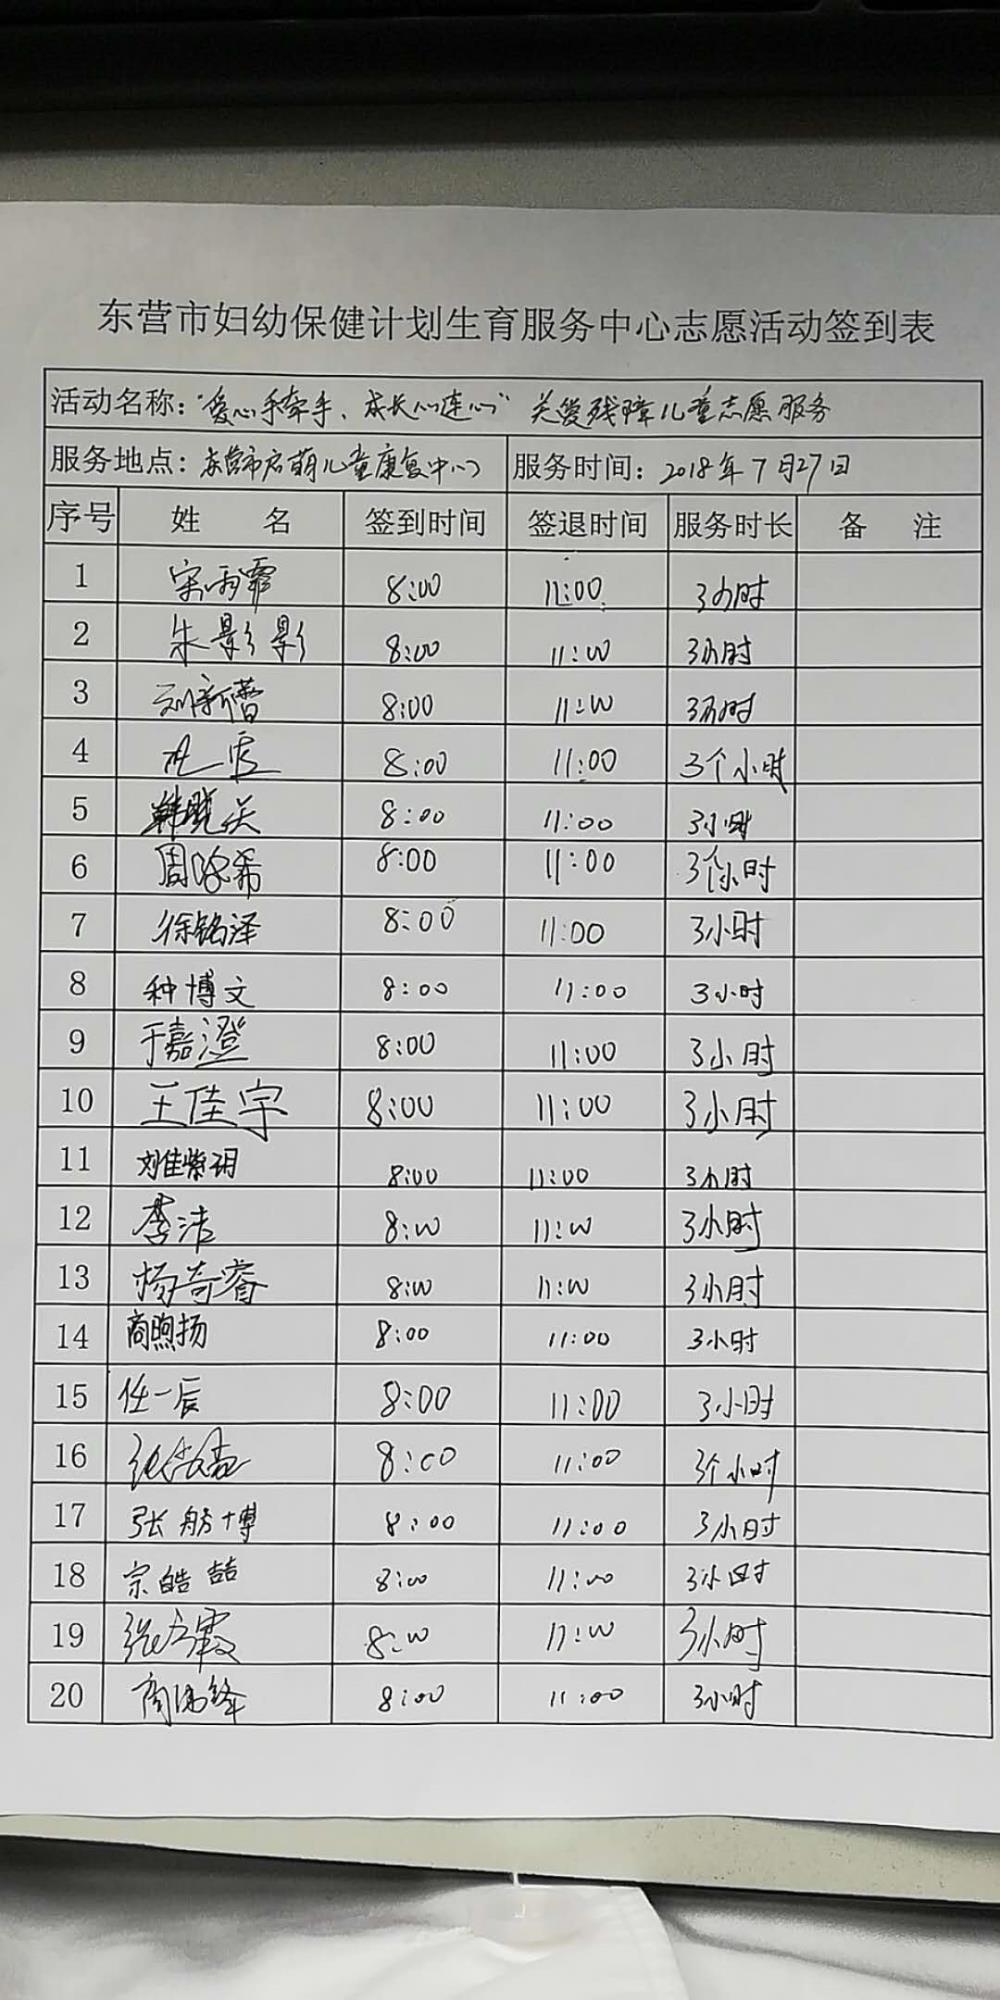 东营市妇幼保健计划生育服务中心志愿活动签到表
活动名称：“爱心手牵手、成长心连心”关爱残障儿童志愿服务
服务地点：东营市启萌儿童康复中心 服务时间：2018年7月27日
序号 姓 名 签到时间 签退时间 服务时长 备 注
1 宋雨霏 8:00 11:00 3小时
2 朱影影 8:00 11:00 3小时
3 刘新蕾 8:00 11:00 3小时
4 8:00 11:00 3个小时
5 韩晓 8:00 11:00 3小时
6 周 希 8:00 11:00 3个小时
7 徐铭泽 8:00 11:00 3小时
8 种博文 8:00 11:00 3小时
9 于嘉澄 8:00 11:00 3小时
10 王佳宇 8:00 11:00 3小时
11 刘佳紫玥 8:00 11:00 3小时
12 李洁 8:00 11:00 3小时
13 杨奇睿 8:00 11:00 3小时
14 商煦扬 8:00 11:00 3小时
15 任一辰 8:00 11:00 3小时
16 张 8:00 11:00 3个小时
17 张 博 8:00 11:00 3小时
18 宗皓喆 8:00 11:00 3小时
19 张 霞 8:00 11:00 3小时
20 商 锋 8:00 11:00 3小时